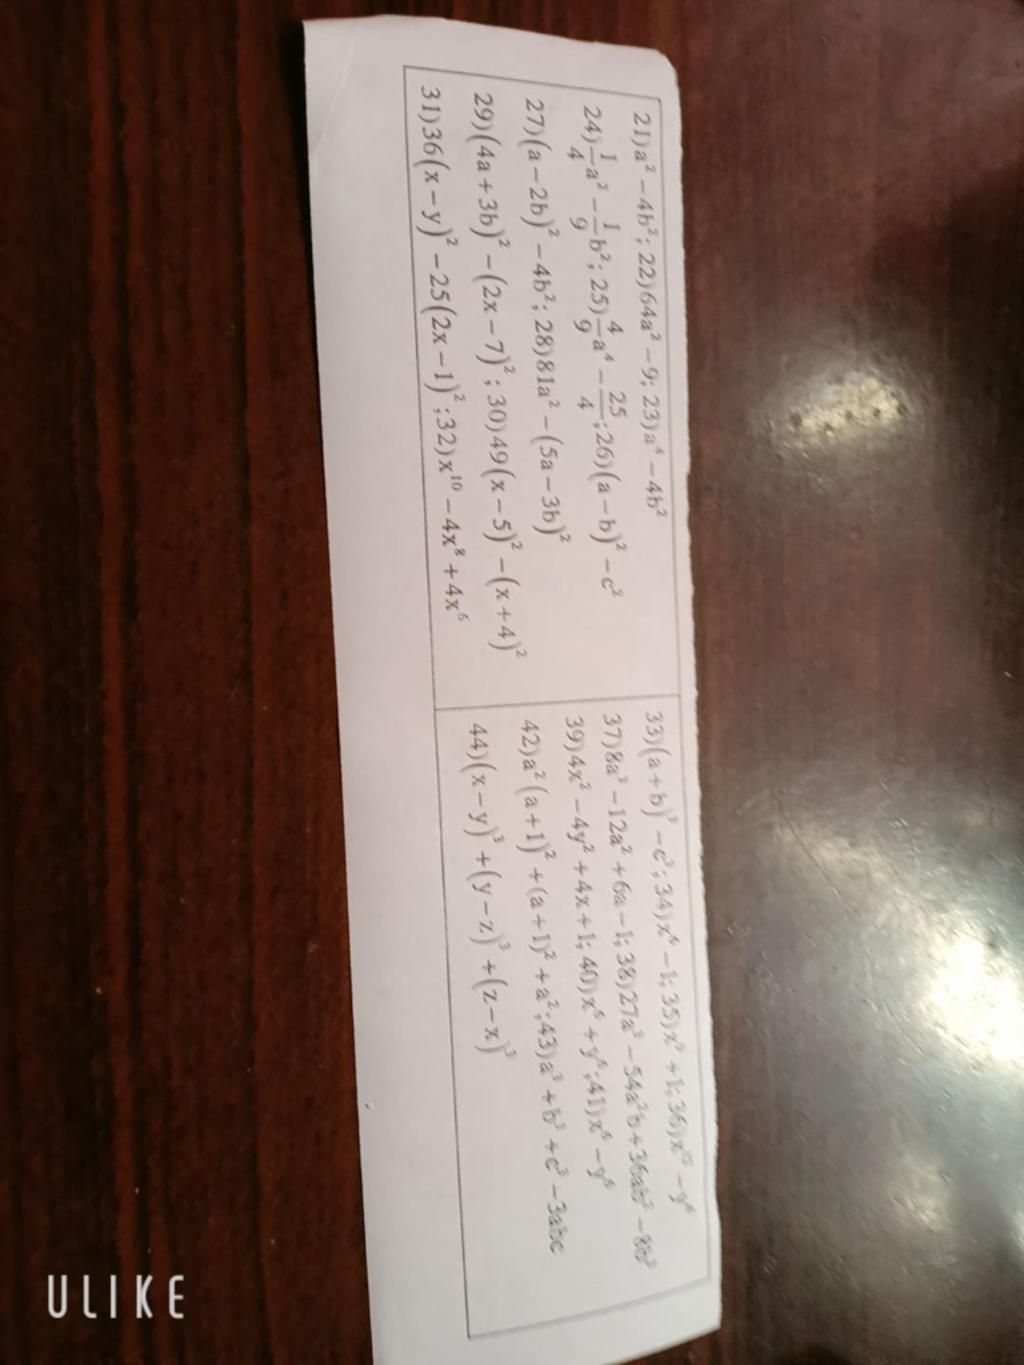 21)a² − 4b²; 22)64a² − 9; 23)a⁴ − 4b²
24)1/4a² − 1/9b²; 25)4/9a⁴ − 25/4; 26)(a − b)² − c²
27)(a − 2b)² − 4b²; 28)81a² − (5a − 3b)²
29)(4a + 3b)² − (2x − 7)²; 30)49(x − 5)² − (x + 4)²
31)36(x − y)² − 25(2x − 1)²; 32)x¹⁰ − 4x⁸ + 4x⁶
33)(a + b)³ − c³; 34)x⁶ − 1; 35)x⁹ + 1; 36)x¹² − y⁶
37)8a³ − 12a² + 6a − 1; 38)27a³ − 54a²b + 36ab² − 8b³
39)4x² − 4y² + 4x + 1; 40)x⁶ + y⁶; 41)x⁶ − y⁶
42)a²(a + 1)² + (a + 1)² + a²; 43)a³ + b³ + c³ − 3abc
44)(x − y)³ + (y − z)³ + (z − x)³
ULIKE